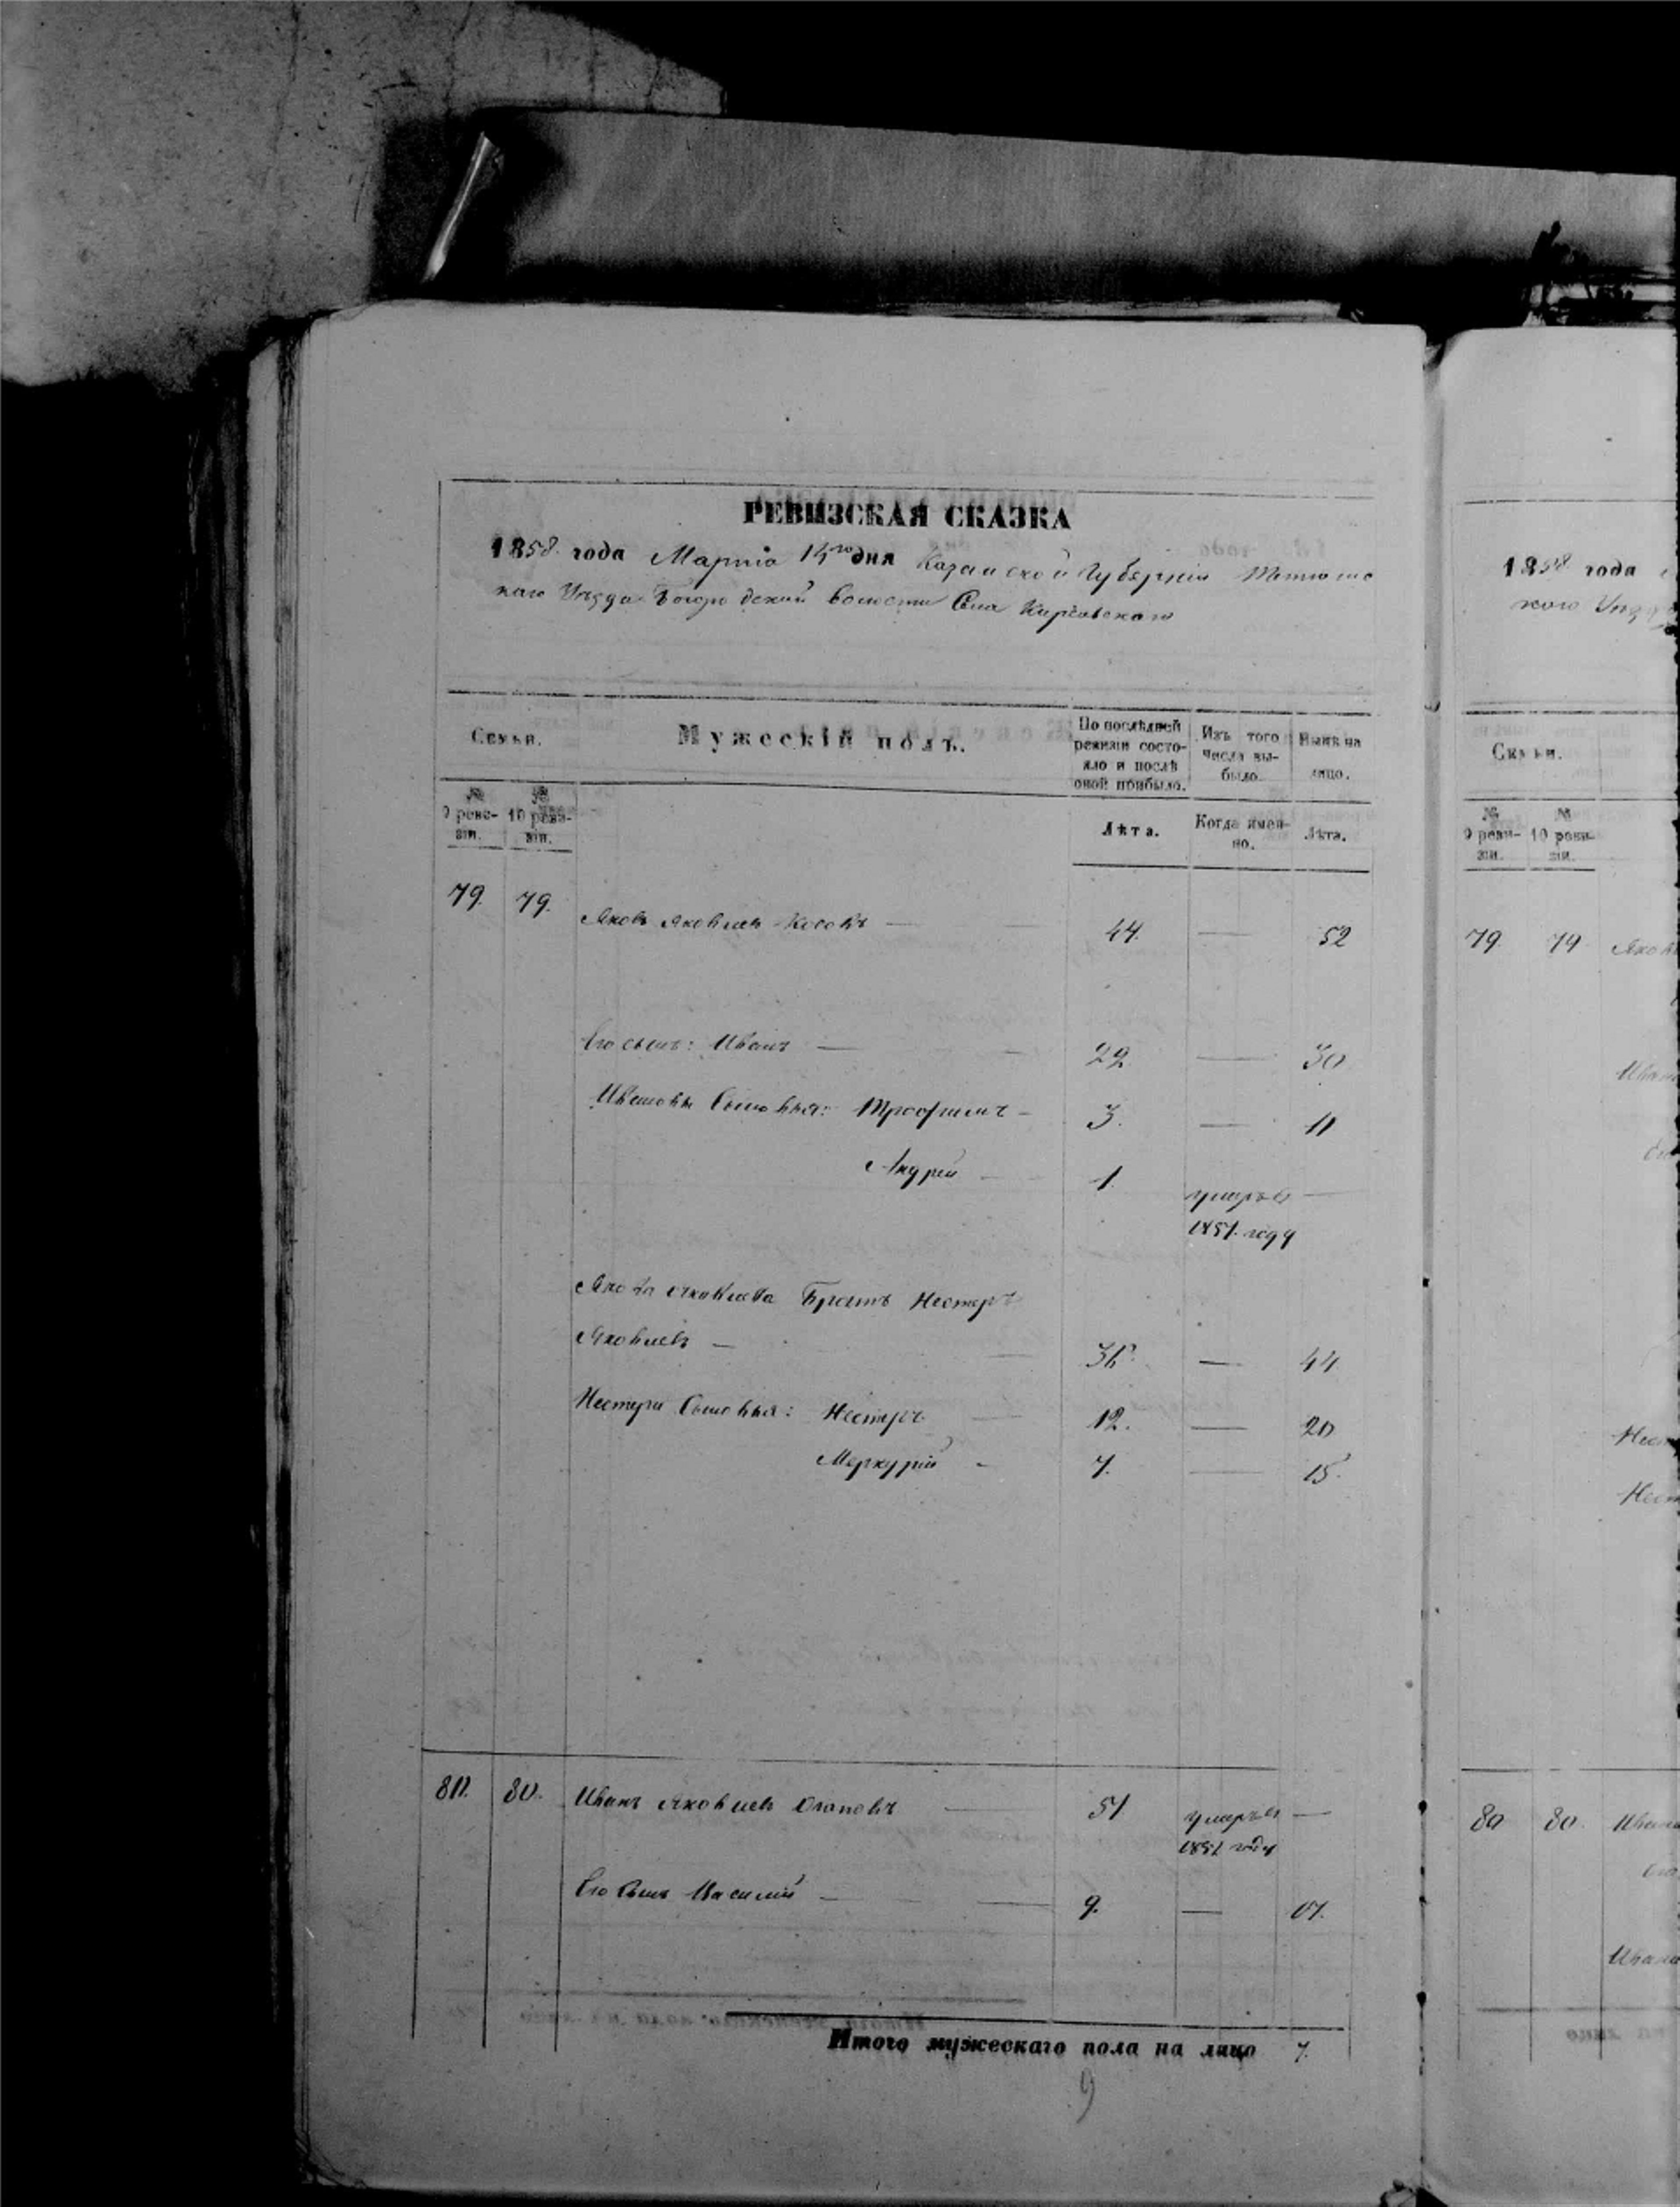 РЕВИЗСКАЯ СКАЗКА
1858 года Марта 15го дня Казанской Губерніи Тетюшс
каго Уѣзда волости Села
Семьи.
Мужескій полъ.
По послѣдней ревизіи состояло и послѣ оной прибыло.
Изъ того числа выбыло.
Нынѣ на лицо.
№ 9 ревизіи.
№ 10 ревизіи.
Лѣта.
Когда именно.
Лѣта.
79. 79. Яковъ Яковлевъ Косовъ — 44. — 52
Его сынъ: Иванъ — 22 — 30
Ивановы Сыновья: Трофимъ — 3. — 11
Андрей — 1. умеръ въ —
1851. году
Якова Яковлева Братъ Нестеръ
Яковлевъ — 36. — 44
Нестера Сыновья: Нестеръ — 12. — 20
Меркурій — 7. — 15.
80. 80. Иванъ Яковлевъ — 51 умеръ въ —
1851 году
Его Сынъ Василий — 9. — 17.
Итого мужескаго пола на лицо 7.
9
1858 года
кого Уѣз
Семьи.
№ 9 ревизіи.
№ 10 ревизіи.
79 79 Яков
Иван
Нест
Нест
80 80. Ивана
Ивана